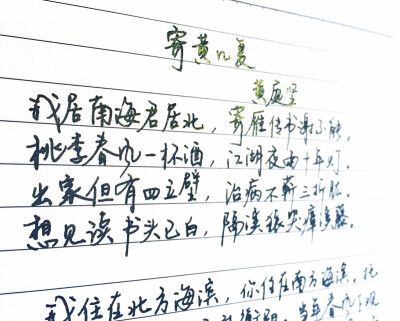 寄黄几复
黄庭坚
我居南海君居北，寄雁传书谢不能。
桃李春风一杯酒，江湖夜雨十年灯。
出家但有四立壁，治病不蕲三折肱。
想见读书头已白，隔溪猿哭瘴溪藤。
我住在北方海滨，你住在南方海滨，托
衡阳。当年春风下观